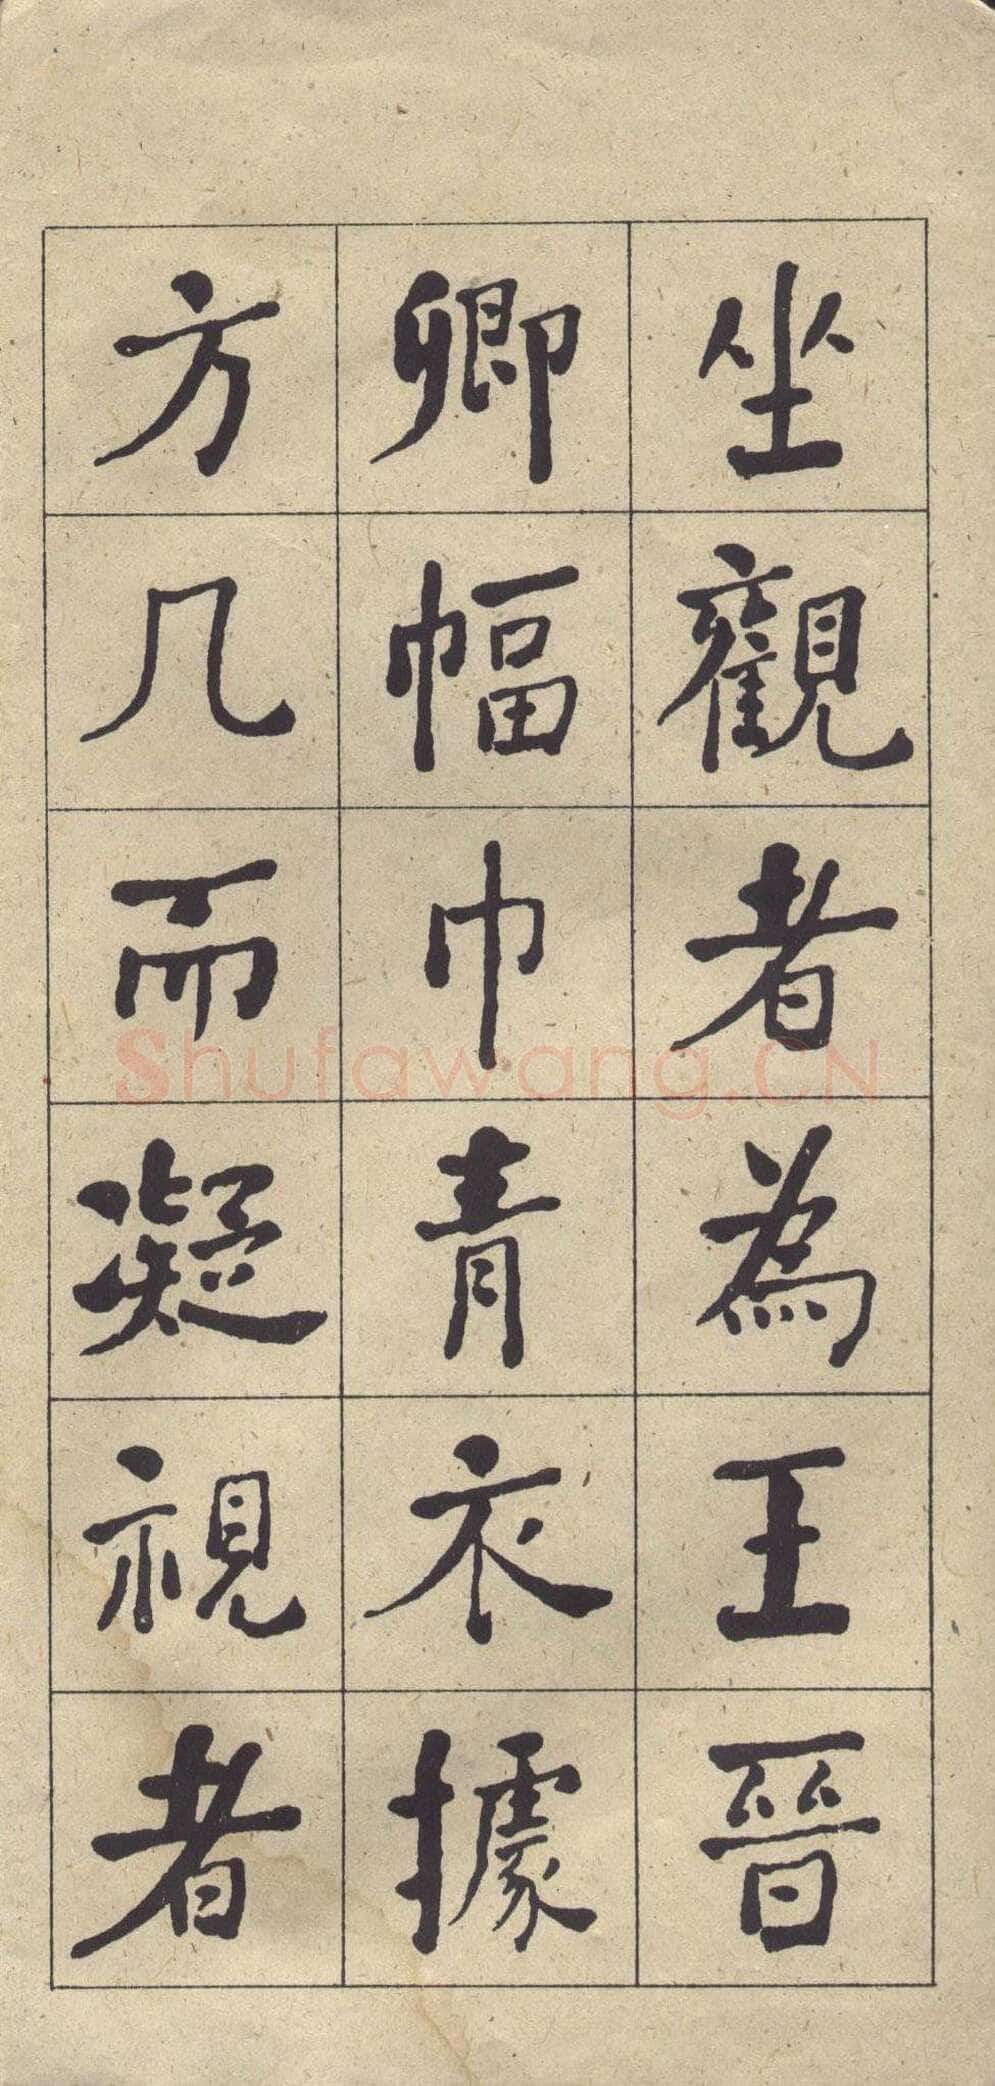 坐觀者為王晉
卿幅巾青衣據
方几而凝視者
Shufawang.CN